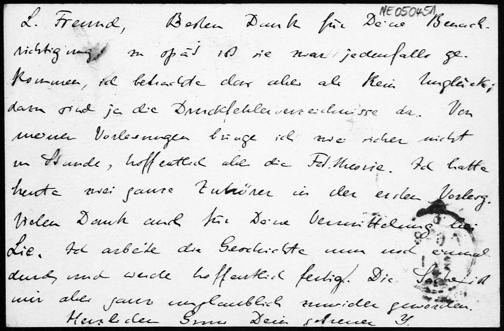 NE05045A
L. Freund, Besten Dank für Deine Benach-
richtigung zu spät ist sie zwar jedenfalls ge-
kommen, ich betrachte das aber als kein Unglück;
dazu sind ja die Druckfehlerverzeichnisse da. Von
meinen Vorlesungen bringe ich zwar sicher nicht
zu Stande, hoffentlich aber die Fkt.theorie. Ich hatte
heute zwei ganze Zuhörer in der ersten Vorlesg.
Vielen Dank auch für Deine Vermittelung bei
Lie. Ich arbeite die Geschichte nun noch einmal
durch und werde hoffentlich fertig. Die ist
mir aber ganz unglaublich zuwider geworden.
Herzlichen Gruss Dein getreuer